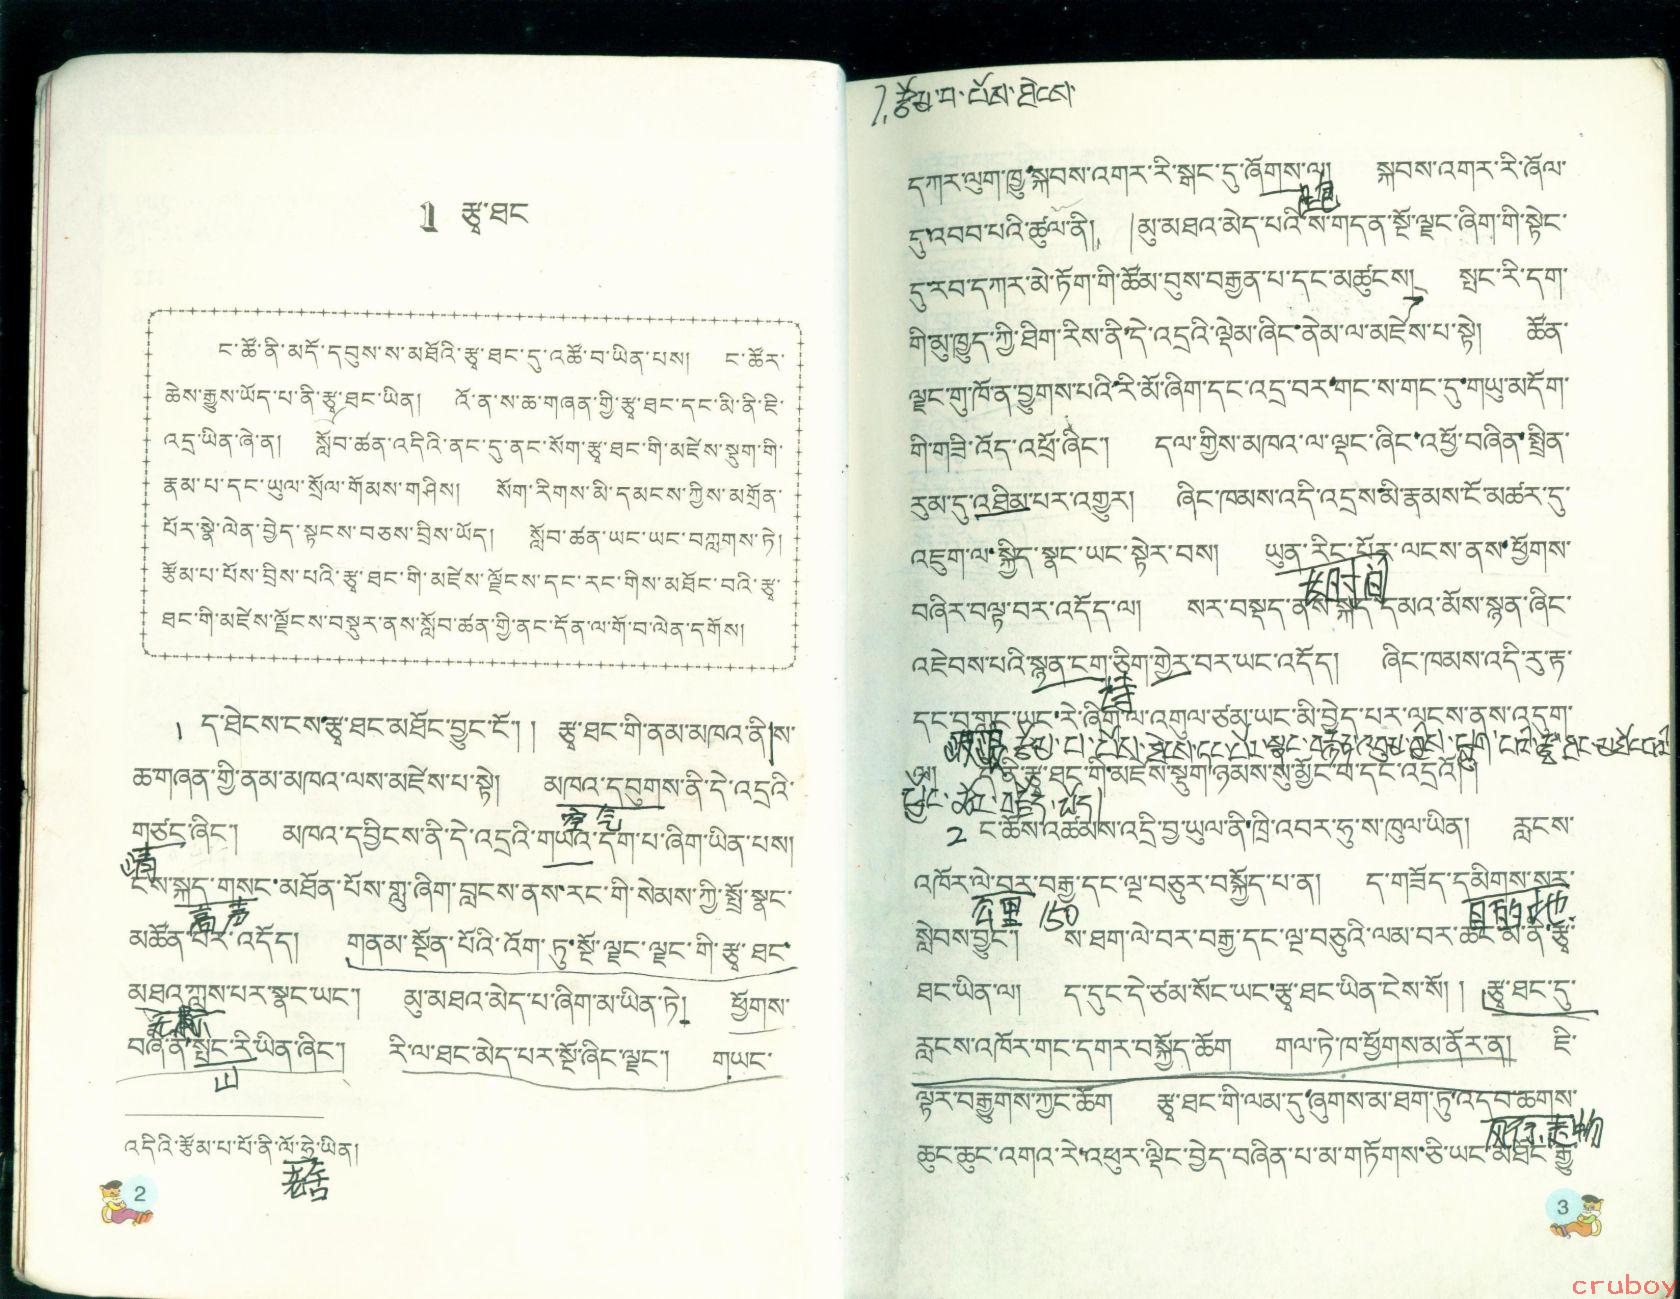 1 རྩྭ་ཐང
ང་ཚོ་ནི་མདོ་དབུས་ས་མཐོའི་རྩྭ་ཐང་དུ་འཚོ་བ་ཡིན་པས། ང་ཚོར་
ཆེས་རྒྱུས་ཡོད་པ་ནི་རྩྭ་ཐང་ཡིན། འོ་ན་ས་ཆ་གཞན་གྱི་རྩྭ་ཐང་དང་མི་ནི་ཇི་
འདྲ་ཡིན་ཞེ་ན། སློབ་ཚན་འདིའི་ནང་དུ་ནང་སོག་རྩྭ་ཐང་གི་མཛེས་སྡུག་གི་
རྣམ་པ་དང་ཡུལ་སྲོལ་གོམས་གཤིས། སོག་རིགས་མི་དམངས་ཀྱིས་མགྲོན་
པོར་སྣེ་ལེན་བྱེད་སྟངས་བཅས་བྲིས་ཡོད། སློབ་ཚན་ཡང་ཡང་བཀླགས་ཏེ།
རྩོམ་པ་པོས་བྲིས་པའི་རྩྭ་ཐང་གི་མཛེས་ལྗོངས་དང་རང་གིས་མཐོང་བའི་རྩྭ་
ཐང་གི་མཛེས་ལྗོངས་བསྡུར་ནས་སློབ་ཚན་གྱི་ནང་དོན་ལ་གོ་བ་ལེན་དགོས།
1 ད་ཐེངས་ངས་རྩྭ་ཐང་མཐོང་བྱུང་ངོ་།། རྩྭ་ཐང་གི་ནམ་མཁའ་ནི།ས་
ཆ་གཞན་གྱི་ནམ་མཁའ་ལས་མཛེས་པ་སྟེ། མཁའ་དབུགས་ནི་དེ་འདྲའི་
空气
གཙང་ཞིང་། མཁའ་དབྱིངས་ནི་དེ་འདྲའི་གཡའ་དག་པ་ཞིག་ཡིན་པས།
ངས་སྐད་གསང་མཐོན་པོས་གླུ་ཞིག་བླངས་ནས་རང་གི་སེམས་ཀྱི་སྤྲོ་སྣང་
高声
མཚོན་པར་འདོད། གནམ་སྔོན་པོའི་འོག་ཏུ་སྔོ་ལྗང་ལྗང་གི་རྩྭ་ཐང་
མཐའ་ཀླས་པར་སྣང་ཡང་། མུ་མཐའ་མེད་པ་ཞིག་མ་ཡིན་ཏེ། ཕྱོགས་
བཞི་ནི་སྤང་རི་ཡིན་ཞིང་། རི་ལ་ཐང་མེད་པར་སྔོ་ཞིང་ལྗང་། གཡང་
山
འདིའི་རྩོམ་པ་པོ་ནི་ལོ་ཧྲེ་ཡིན།
老舍
2
1,རྩོམ་པ་པོས་ཐེངས་
དཀར་ལུག་ཁྱུ་སྐབས་འགར་རི་སྒང་དུ་ཞོགས་ལ། སྐབས་འགར་རི་ཞོལ་
དུ་འབབ་པའི་ཚུལ་ནི། །མུ་མཐའ་མེད་པའི་ས་གདན་སྔོ་ལྗང་ཞིག་གི་སྟེང་
དུ་རབ་དཀར་མེ་ཏོག་གི་ཚོམ་བུས་བརྒྱན་པ་དང་མཚུངས། སྤང་རི་དག་
གི་མུ་ཁྱུད་ཀྱི་ཐིག་རིས་ནི་དེ་འདྲའི་ལྡེམ་ཞིང་ནེམ་ལ་མཛེས་པ་སྟེ། ཚོན་
ལྗང་གུ་ཁོ་ན་བྱུགས་པའི་རི་མོ་ཞིག་དང་འདྲ་བར་གང་ས་གང་དུ་གཡུ་མདོག་
གི་གཟི་འོད་འཕྲོ་ཞིང་། དལ་གྱིས་མཁའ་ལ་ལྡང་ཞིང་འཕྱོ་བཞིན་སྤྲིན་
རུམ་དུ་འཐིམ་པར་འགྱུར། ཞིང་ཁམས་འདི་འདྲས་མི་རྣམས་ངོ་མཚར་དུ་
འཇུག་ལ་སྐྱིད་སྣང་ཡང་སྟེར་བས། ཡུན་རིང་པོར་ལངས་ནས་ཕྱོགས་
长时间
བཞིར་བལྟ་བར་འདོད་ལ། སར་བསྡད་ནས་སྐད་དམའ་མོས་སྙན་ཞིང་
འཇེབས་པའི་སྙན་ངག་ཅིག་གྱེར་བར་ཡང་འདོད། ཞིང་ཁམས་འདི་རུ་རྟ་
དང་བ་གླང་ཡང་རེ་ཞིག་ལ་འགུལ་ཙམ་ཡང་མི་བྱེད་པར་ལངས་ནས་འདུག་
ལ། དེ་ནི་རྩྭ་ཐང་གི་མཛེས་སྡུག་ཉམས་སུ་མྱོང་བ་དང་འདྲའོ།།
2 ང་ཚོས་འཚམས་འདྲི་བྱ་ཡུལ་ནི་ཁྲི་འབར་ཧུ་ས་ཁུལ་ཡིན། རླངས་
འཁོར་ལེ་བར་བརྒྱ་དང་ལྔ་བཅུར་བསྐྱོད་པ་ན། ད་གཟོད་དམིགས་སར་
公里 150 目的地
སླེབས་བྱུང་། ས་ཐག་ལེ་བར་བརྒྱ་དང་ལྔ་བཅུའི་ལམ་བར་ཚང་མ་ནི་རྩྭ་
ཐང་ཡིན་ལ། ད་དུང་དེ་ཙམ་སོང་ཡང་རྩྭ་ཐང་ཡིན་ངེས་སོ།། རྩྭ་ཐང་དུ་
རླངས་འཁོར་གང་དགར་བསྐྱོད་ཆོག གལ་ཏེ་ཁ་ཕྱོགས་མ་ནོར་ན། ཇི་
ལྟར་བརྒྱུགས་ཀྱང་ཆོག རྩྭ་ཐང་གི་ལམ་དུ་ཞུགས་མ་ཐག་ཏུ་འདབ་ཆགས་
ཆུང་ཆུང་འགའ་རེ་འཕུར་ལྡིང་བྱེད་བཞིན་པ་མ་གཏོགས་ཅི་ཡང་མཐོང་རྒྱུ་
3
cruboy